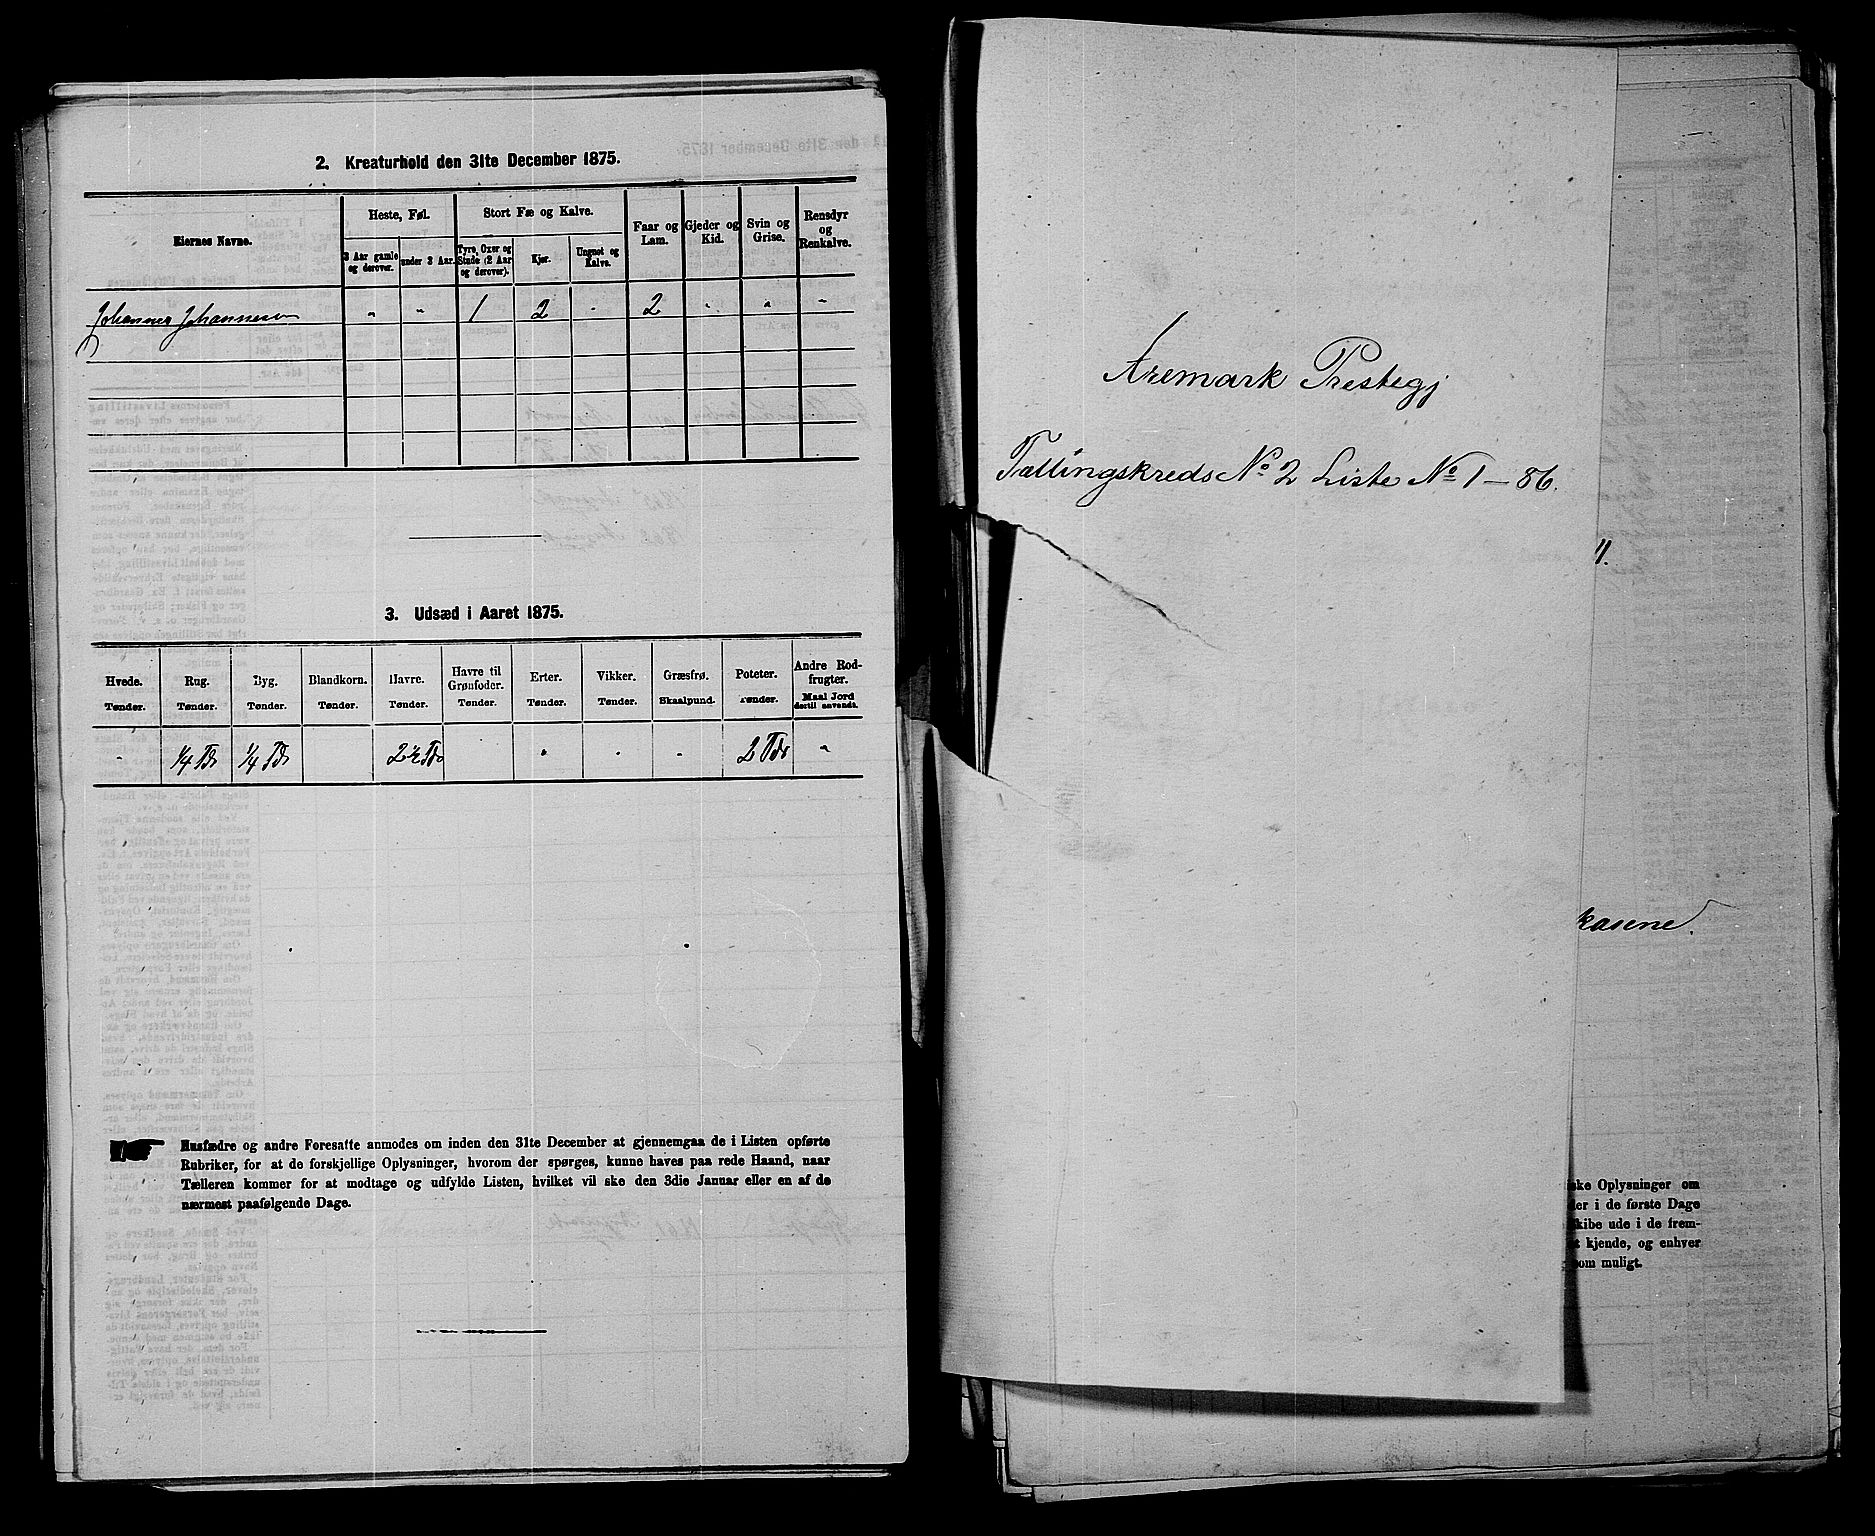 2. Kreaturhold den 31te December 1875.
Eiernes Navne. Heste, Føl. Stort Fæ og Kalve. Faar og Lam. Gjeder og Kid. Svin og Grise. Rensdyr og Renkalve.
3 Aar gamle og derover. under 3 Aar. Tyre, Oxer og Stude (2 Aar og derover). Kjør. Ungnøt og Kalve.
Johannes Johannesen " " 1 2 " 2 " " "
3. Udsæd i Aaret 1875.
Hvede. Rug. Byg. Blandkorn. Havre. Havre til Grønfoder. Erter. Vikker. Græsfrø. Poteter. Andre Rodfrugter.
Tønder. Tønder. Tønder. Tønder. Tønder. Tønder. Tønder. Tønder. Skaalpund. Tønder. Maal Jord dertil anvendt.
" 1/4 Td 1/4 Td 2 1/2 Tdr " " " 2 Tdr "
Husfædre og andre Foresatte anmodes om inden den 31te December at gjennemgaa de i Listen opførte
Rubriker, for at de forskjellige Oplysninger, hvorom der spørges, kunne haves paa rede Haand, naar
Tælleren kommer for at modtage og udfylde Listen, hvilket vil ske den 3die Januar eller en af de
nærmest paafølgende Dage.
Aremark Prestegj
Tællingskreds No 2 Liste No 1 – 86.
11.
kasene.
ske Oplysninger om
der i de første Dage
kibe ude i de frem-
t kjende, og enhver
som muligt.